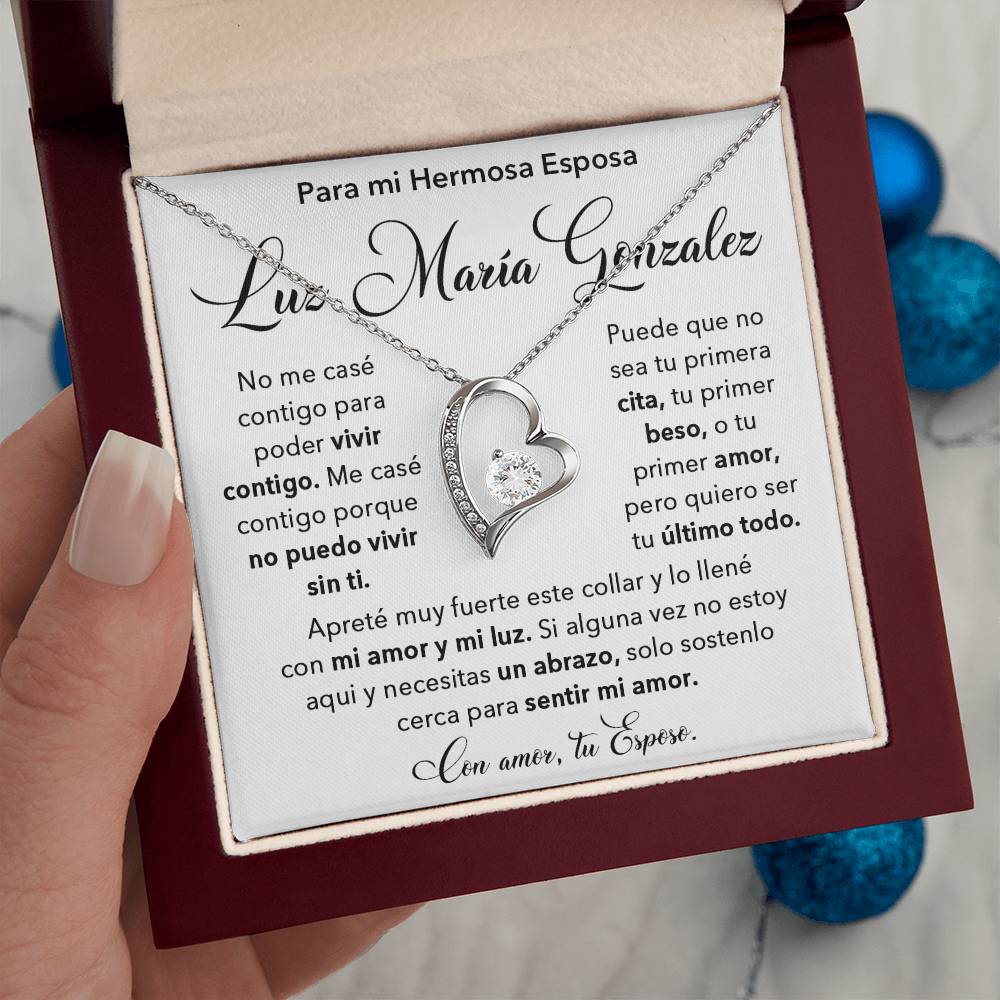 Para mi Hermosa Esposa
Luz María Gonzalez
No me casé
contigo para
poder vivir
contigo. Me casé
contigo porque
no puedo vivir
sin ti.
Puede que no
sea tu primera
cita, tu primer
beso, o tu
primer amor,
pero quiero ser
tu último todo.
Apreté muy fuerte este collar y lo llené
con mi amor y mi luz. Si alguna vez no estoy
aqui y necesitas un abrazo, solo sostenlo
cerca para sentir mi amor.
Con amor, tu Esposo.